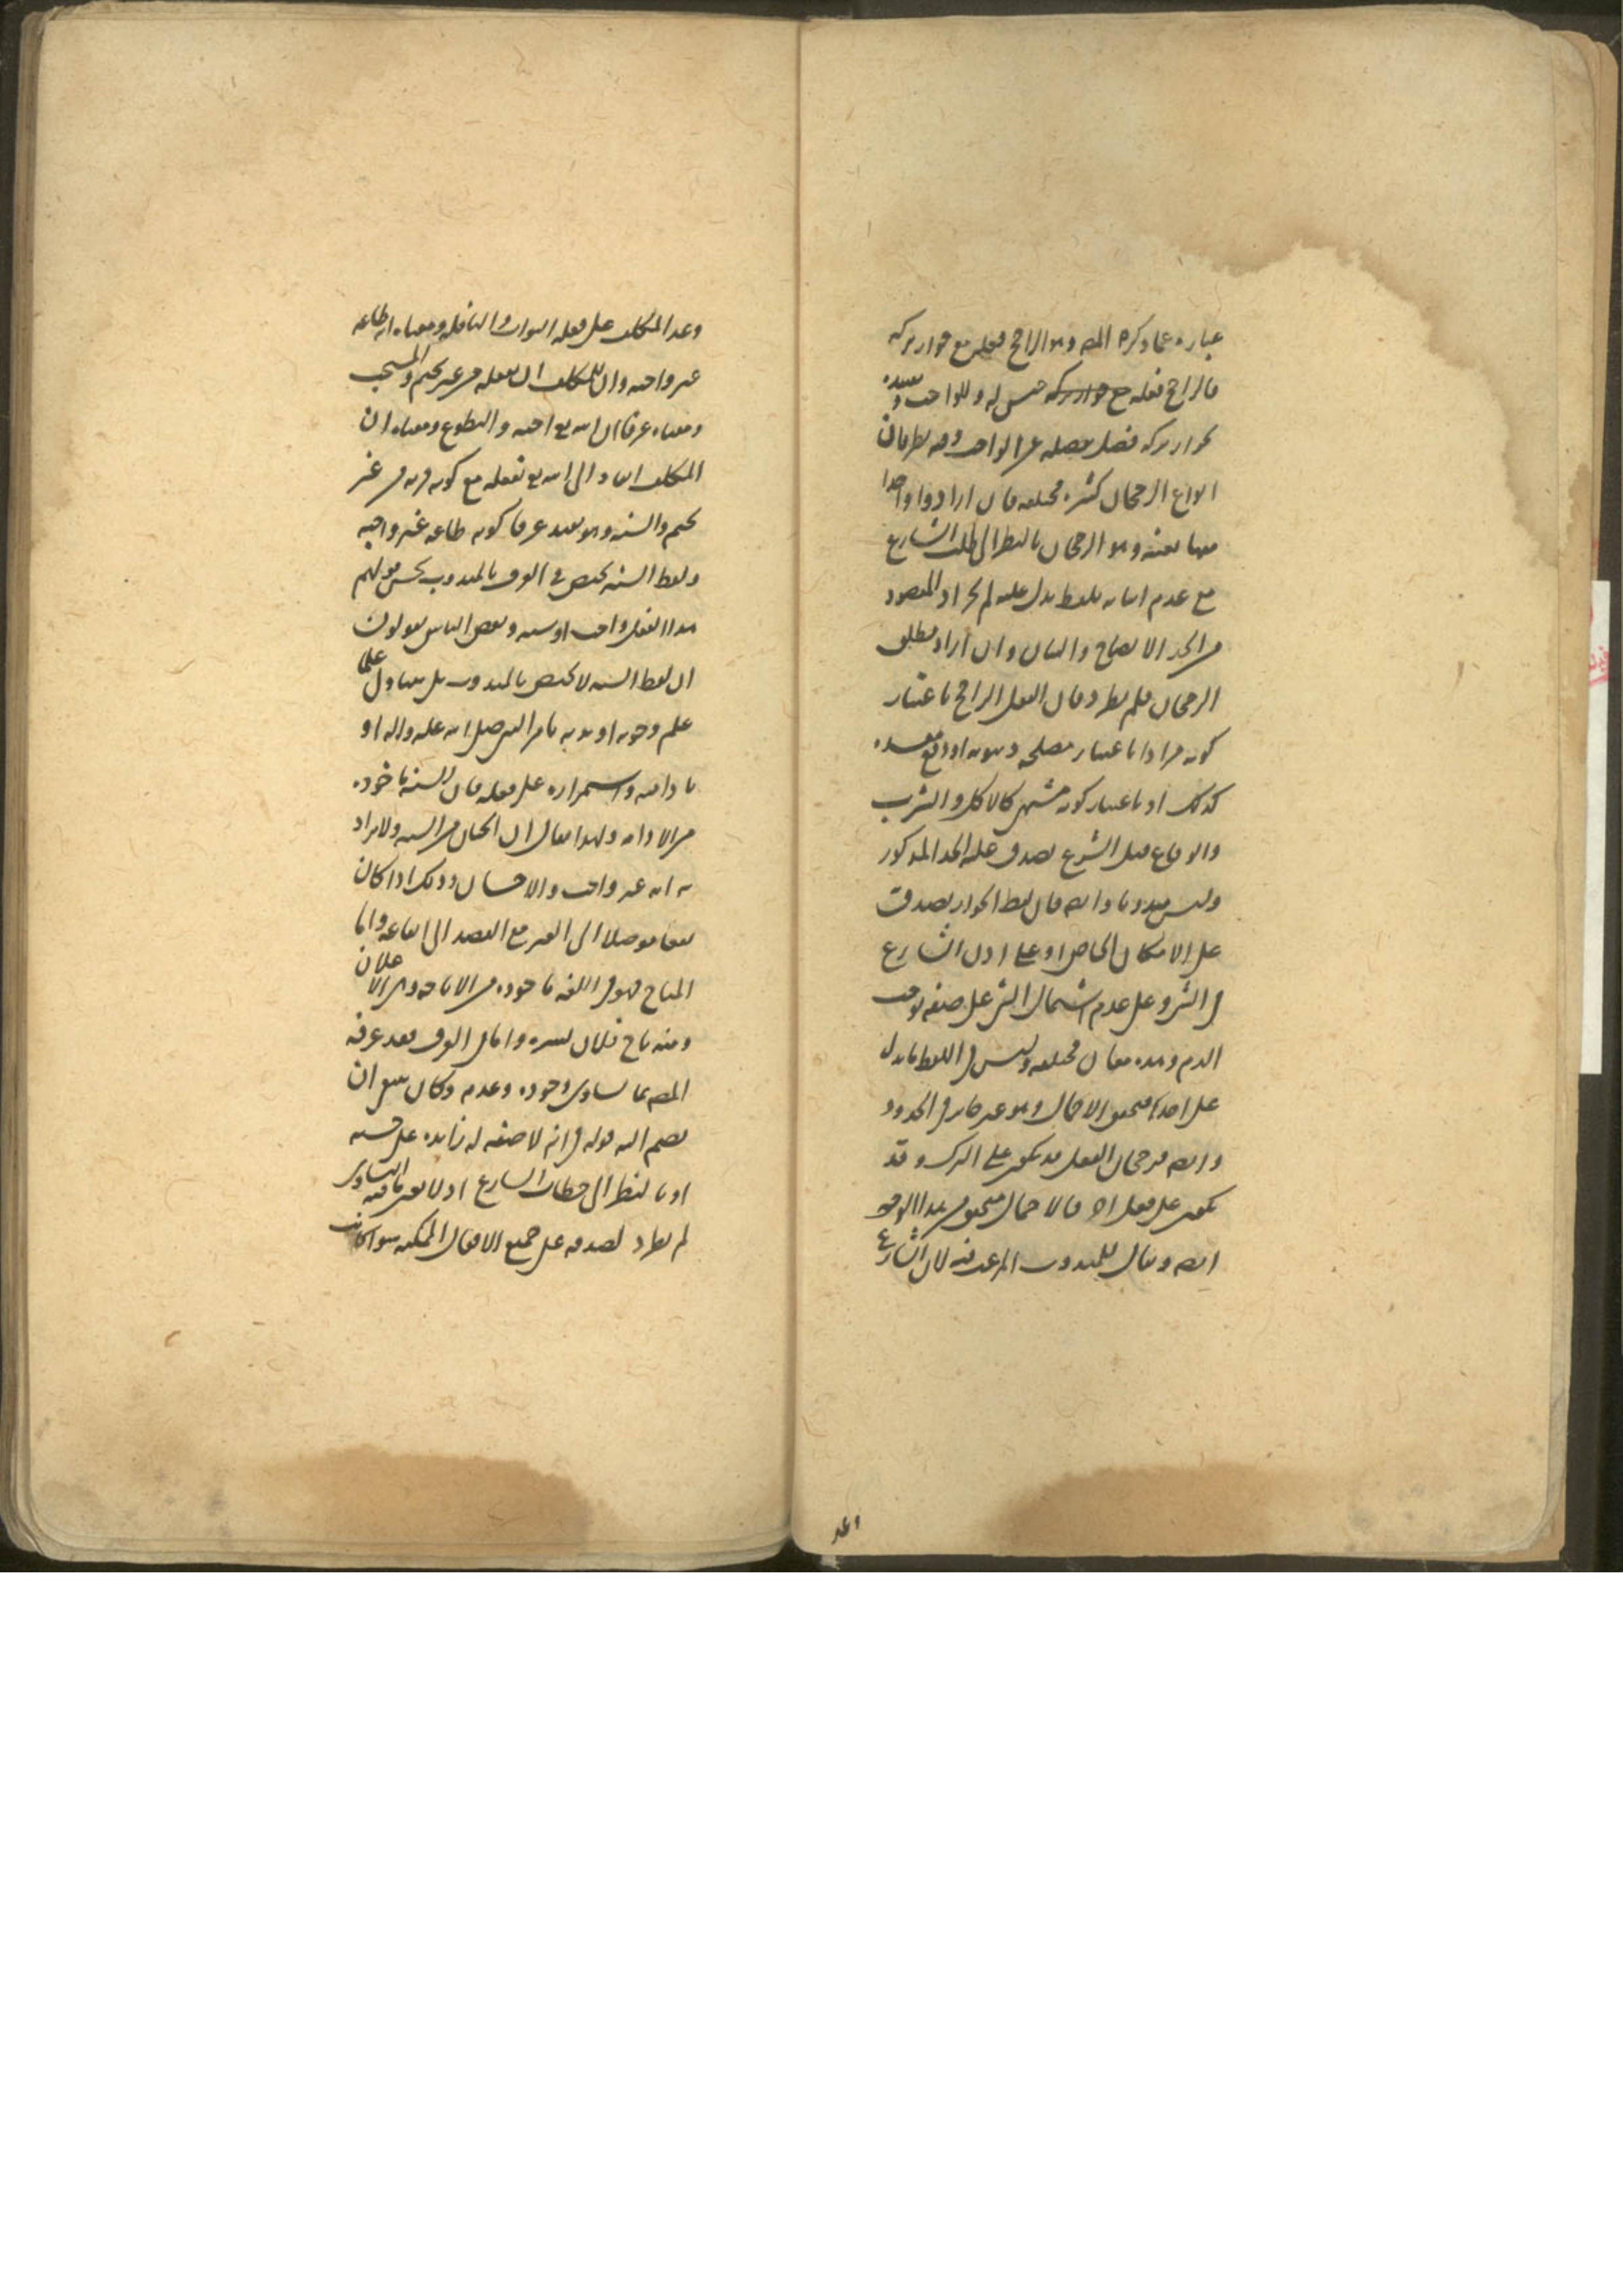 عباره عما ذكره المص وهو الراجح فعله مع جواز تركه
فالراجح فعله مع جواز تركه جنس له وللواجب وتقييده
بجواز تركه فصل يفصله عن الواجب وفيه نظر فان
انواع الرجحان كثيره مختلفه فان ارادوا واحدا
منها بعينه وهو الرجحان بالنظر الى طلب الشارع
مع عدم اتيانه بلفظ يدل عليه لم يجز اذ المقصود
من الحد الايضاح والبيان وان اراد مطلق
الرجحان فلم يطرد فان الفعل الراجح باعتبار
كونه مرادا باعتبار مصلحه دنيويه او دافع مفسده
كذلك او باعتبار كونه مشتهى كالاكل والشرب
والوقاع قبل الشرع يصدق عليه الحد المذكور
وليس مندوبا وايضا فان لفظ الجواز يصدق
على الامكان الخاص او على اذن الشارع
في الشي وعلى عدم اشتمال الشي على صفه توجب
الذم وهذه معان مختلفه وليس في اللفظ ما يدل
على احدها فيتحقق الاجمال وهو غير جايز في الحدود
وايضا فرجحان الفعل قد يكون على الترك وقد
يكون على فعل اخر فالاجمال متحقق من هذا الوجه
ايضا ويقال للمندوب المرغب فيه لان الشارع
وعد
وعد المكلف على فعله الثواب والنافله ومعناه انه طاعه
غير واجبه وان للمكلف ان يفعله من غير تحتم والمستحب
ومعناه عرفا ان الله تع احبه والتطوع ومعناه ان
المكلف انقاد الى الله تع بفعله مع كونه قربه من غير
تحتم والسنه وهو يفيد عرفا كونه طاعه غير واجبه
ولفظ السنه يختص في العرف بالمندوب بحسن قولهم
هذا الفعل واجب او سنه وبعض الناس يقولون
ان لفظ السنه لا يختص بالمندوب بل يتناول كلما
علم وجوبه او ندبه بامر النبي صلى الله عليه واله او
بادامته واستمراره على فعله فان السنه ماخوذه
من الادامه ولهذا يقال ان الختان من السنه ولا يراد
به انه غير واجب والاحسان وذلك اذا كان
نفعا موصلا الى الغير مع القصد الى ايقاعه واما
المباح فهو في اللغه ماخوذه من الاباحه وهي الاعلان
ومنه باح فلان بسره واما في العرف فقد عرفه
المص بما تساوى وجوده وعدمه وكان ينبغي ان
يضم اليه قوله في انه لا صفه له زايده على حسنه
او بالنظر الى خطاب الشارع اذ لا يعين ما فيه التساوي
لم يطرد لصدقه على جميع الافعال الممكنه سوا كانت